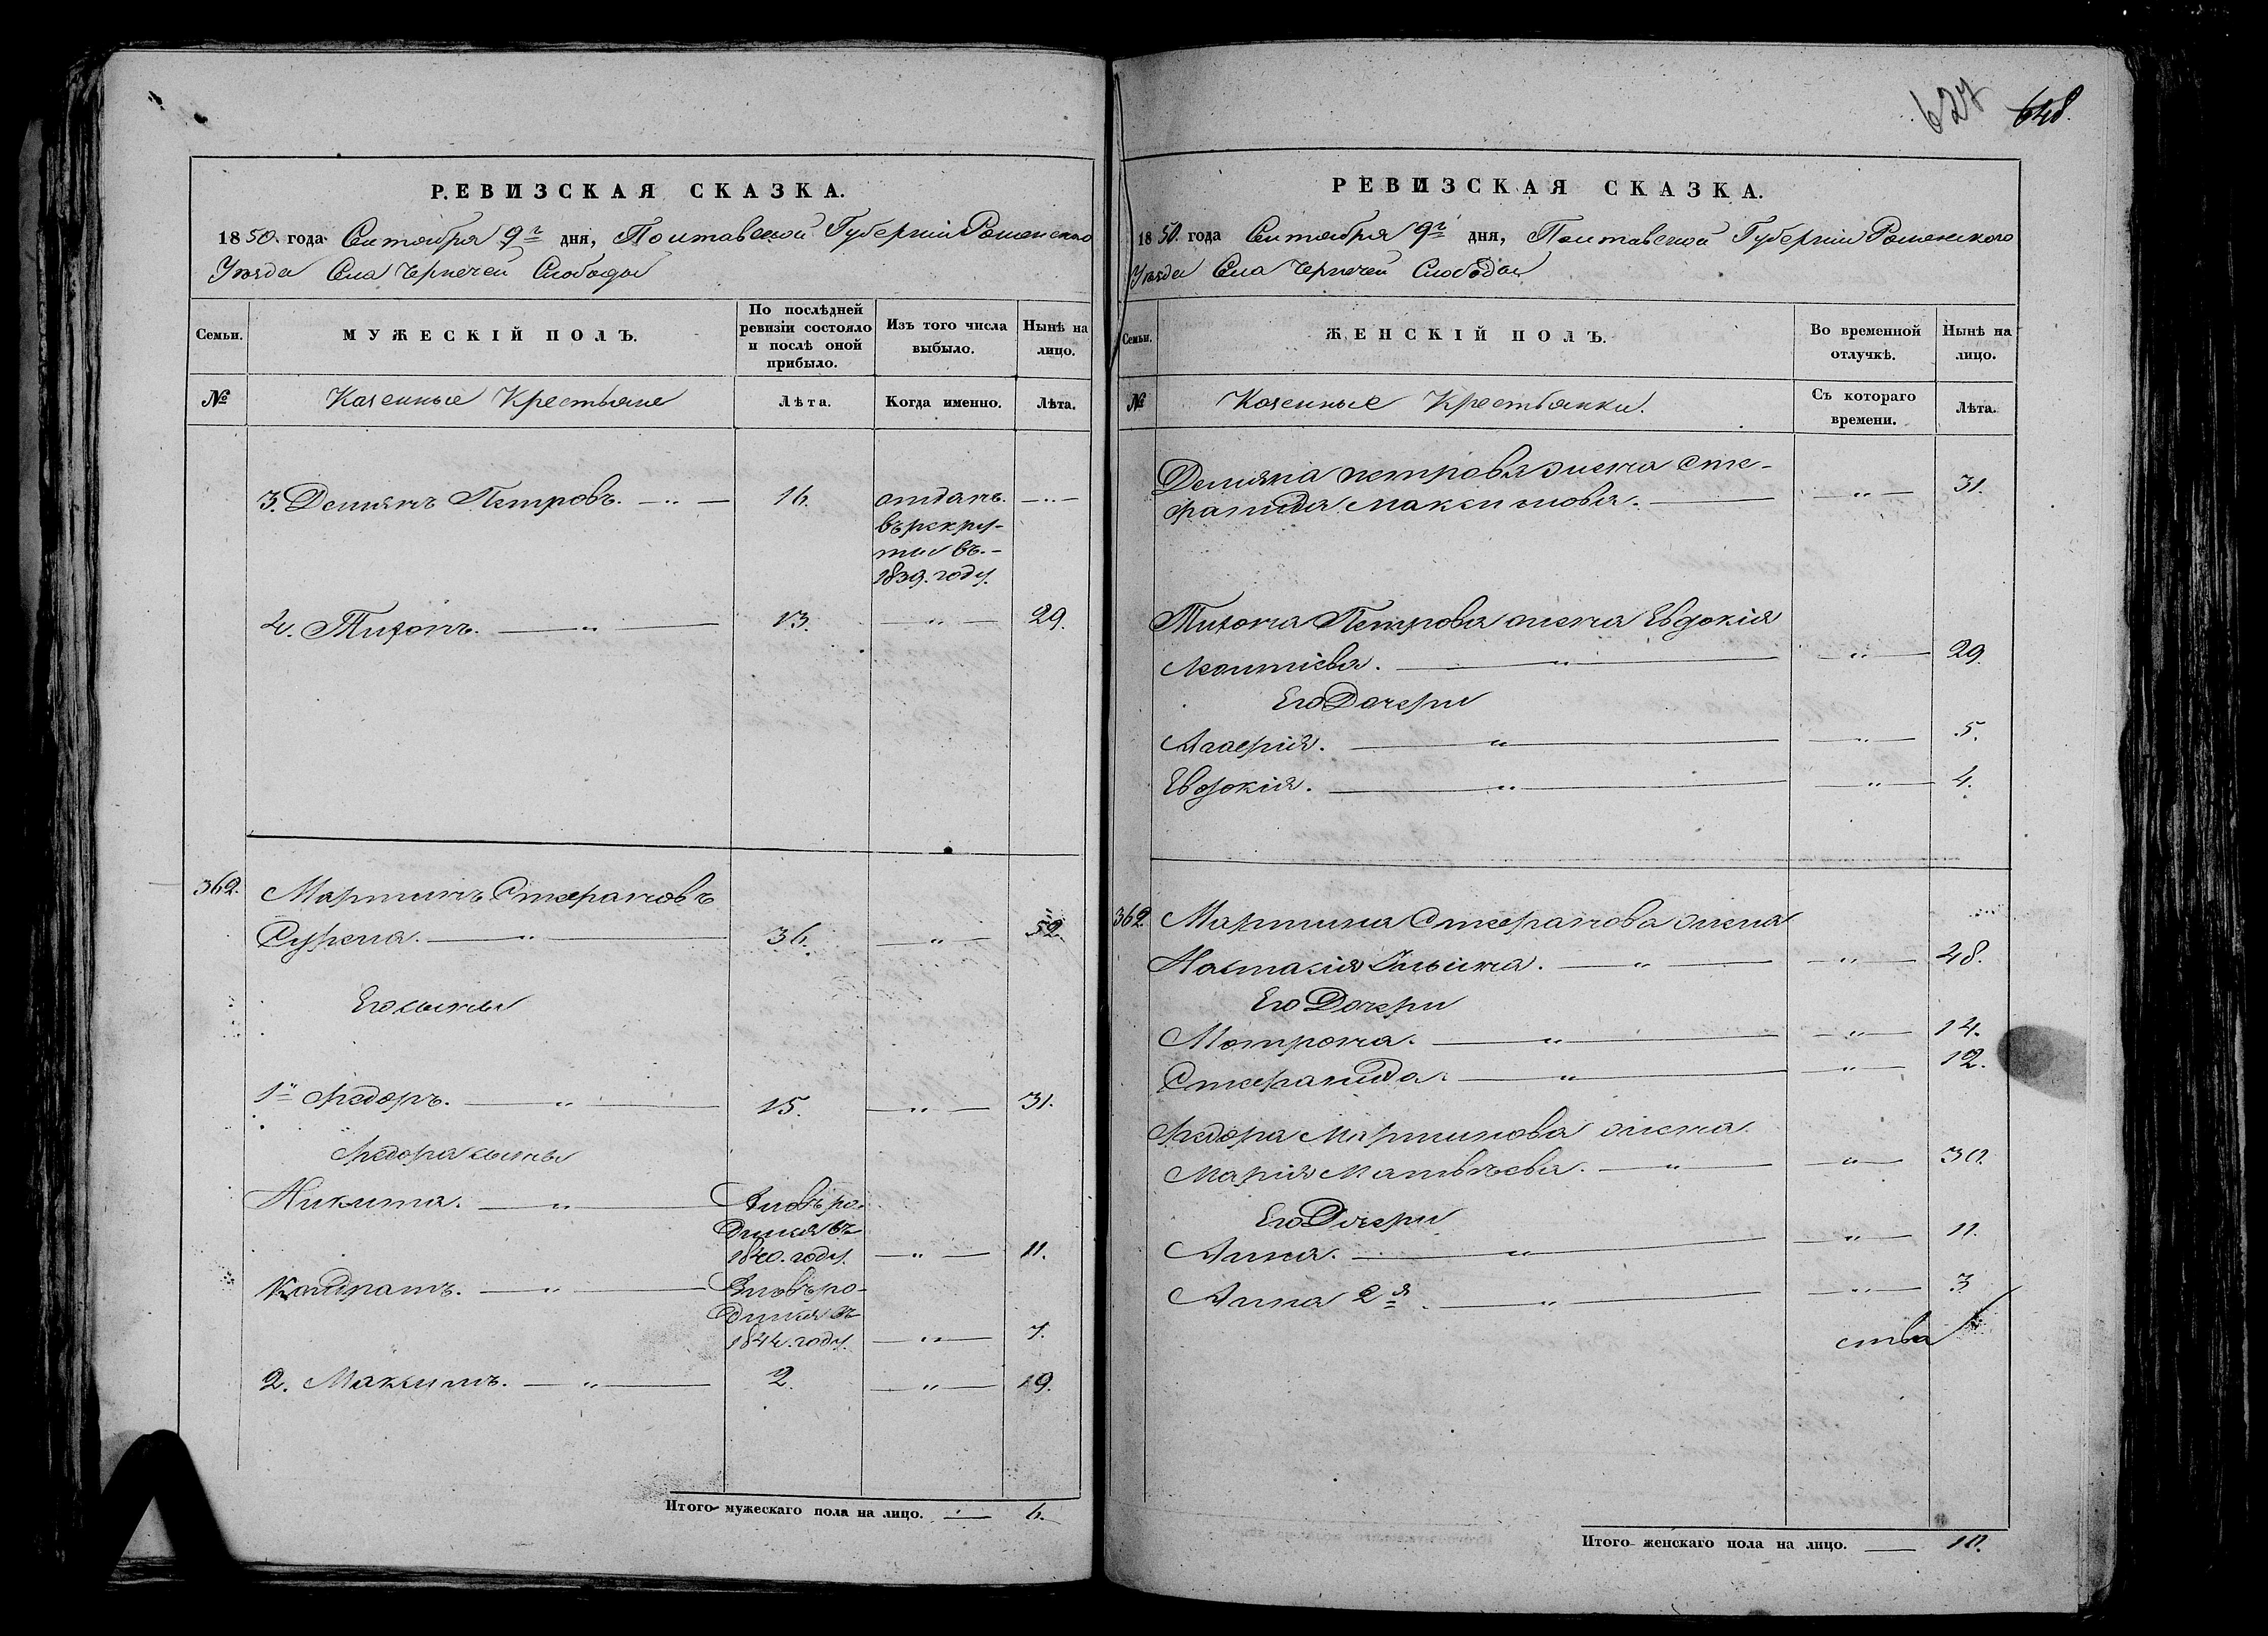 РЕВИЗСКАЯ СКАЗКА.
1850. года Сентября 9го дня, Полтавской Губерніи Роменского
Уѣзда Села Чернечей Слободы
Семьи.
МУЖЕСКІЙ ПОЛЪ.
По послѣдней ревизіи состояло и послѣ оной прибыло.
Изъ того числа выбыло.
Нынѣ на лицо.
№ Казенные Крестьяне Лѣта. Когда именно. Лѣта.
3. Демянъ Петровъ. — „ — 16. отданъ — „ —
въ рекру-
ты въ —
1839. году.
4. Тихонъ. — „ — 13. — „ — 29.
362. Мартинъ Стефановъ
— „ — 36. — „ — 52.
Его сыны
1й Федоръ. — „ — 15. — „ — 31.
Федора сыны
Никита. — „ — Вновь ро-
дился въ
1840. году. — „ — 11.
Кондратъ. — „ — Вновь ро-
дился въ
1844. году. — „ — 7.
2. Максимъ. — „ — 2. — „ — 19.
Итого мужескаго пола на лицо. — 6.
627 648.
РЕВИЗСКАЯ СКАЗКА.
1850. года Сентября 9го дня, Полтавской Губерніи Роменского
Уѣзда Села Чернечей Слободы
Семьи.
ЖЕНСКІЙ ПОЛЪ.
Во временной отлучкѣ.
Нынѣ на лицо.
№ Казенные Крестьянки. Съ котораго времени. Лѣта.
Демяна Петрова жена Сте-
фанида Максимова. — — „ — 31.
Тихона Петрова жена Евдокія
Леонтіева. — „ — — „ — 29.
Его Дочери
— „ — — „ — 5.
Евдокія. — „ — — „ — 4.
362. Мартина Стефанова жена
Настасія Ильина. — „ — — „ — 48.
Его Дочери
Мотрона. — „ — — „ — 14.
Стефанида. — „ — — „ — 12.
Федора Мартинова жена
Марія Матвѣева. — „ — — „ — 30.
Его Дочери
Анна. — „ — — „ — 11.
Анна 2я — „ — — „ — 3
ства
Итого женскаго пола на лицо. — 10.